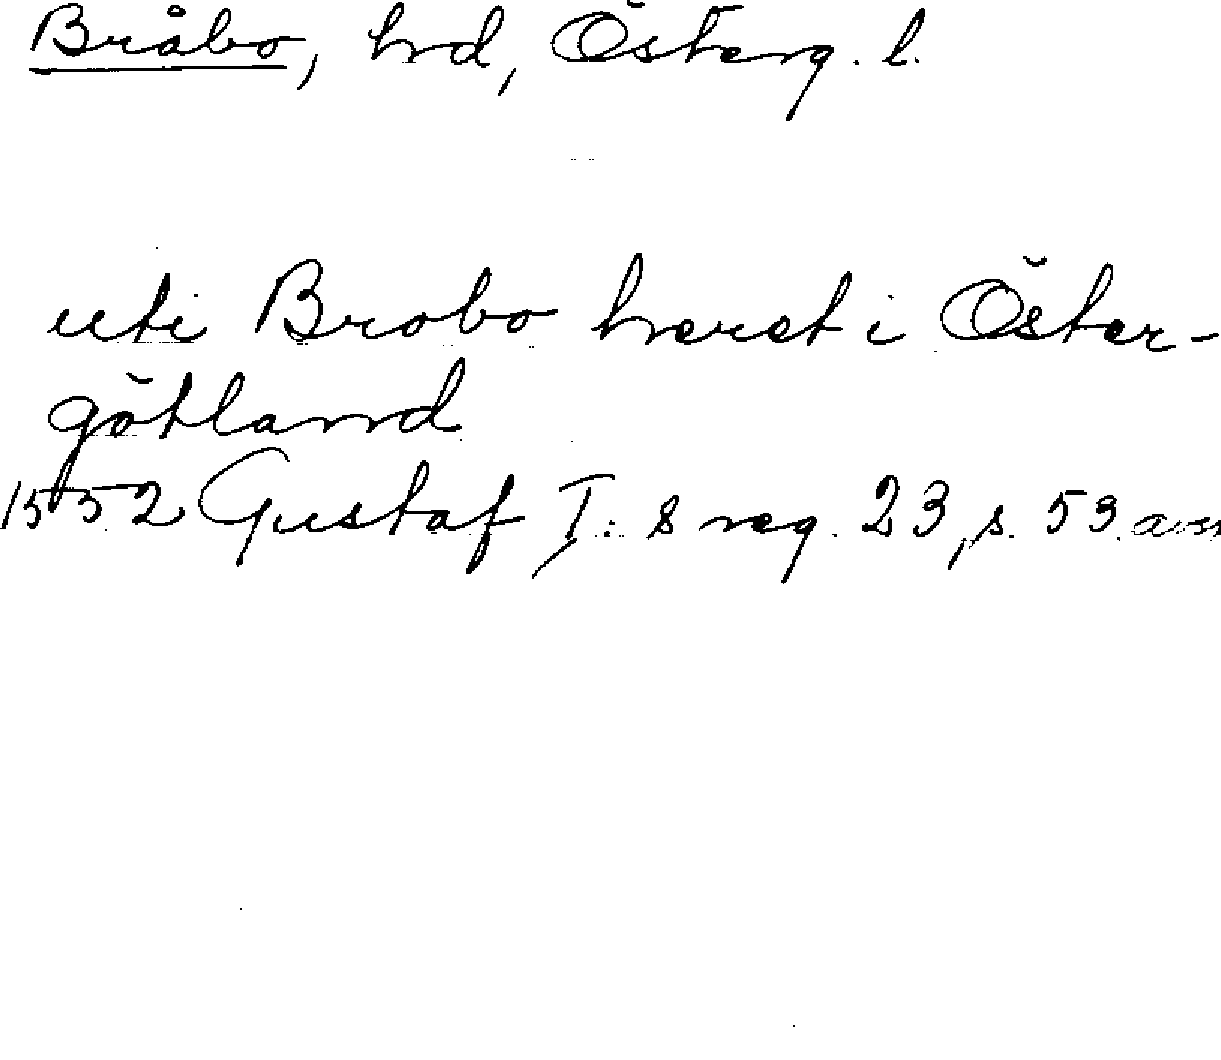 Bråbo, hrd, Österg. l.
uti Brobo heret i Öster-
götland
1552 Gustaf I:s reg. 23, s. 53.